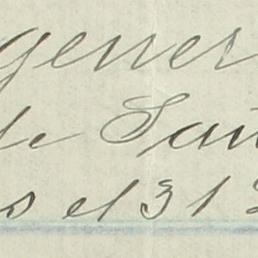 gener
de San
s el 31